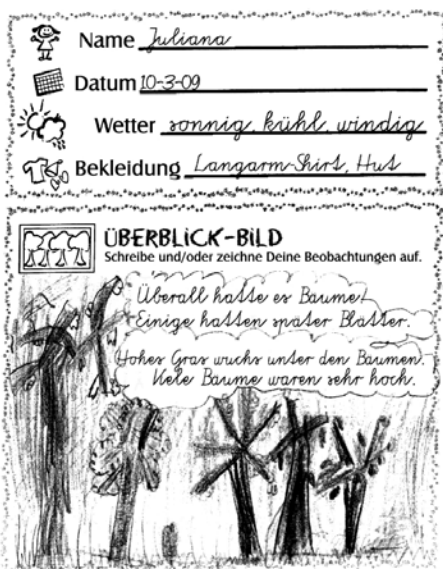 Name Juliana
Datum 10-3-09
Wetter sonnig, kühl, windig
Bekleidung Langarm-Shirt, Hut
ÜBERBLiCK-BiLD
Schreibe und/oder zeichne Deine Beobachtungen auf.
Überall hatte es Baume!
Einige hatten spater Blatter.
Hohes Gras wuchs unter den Baumen.
Viele Baume waren sehr hoch.